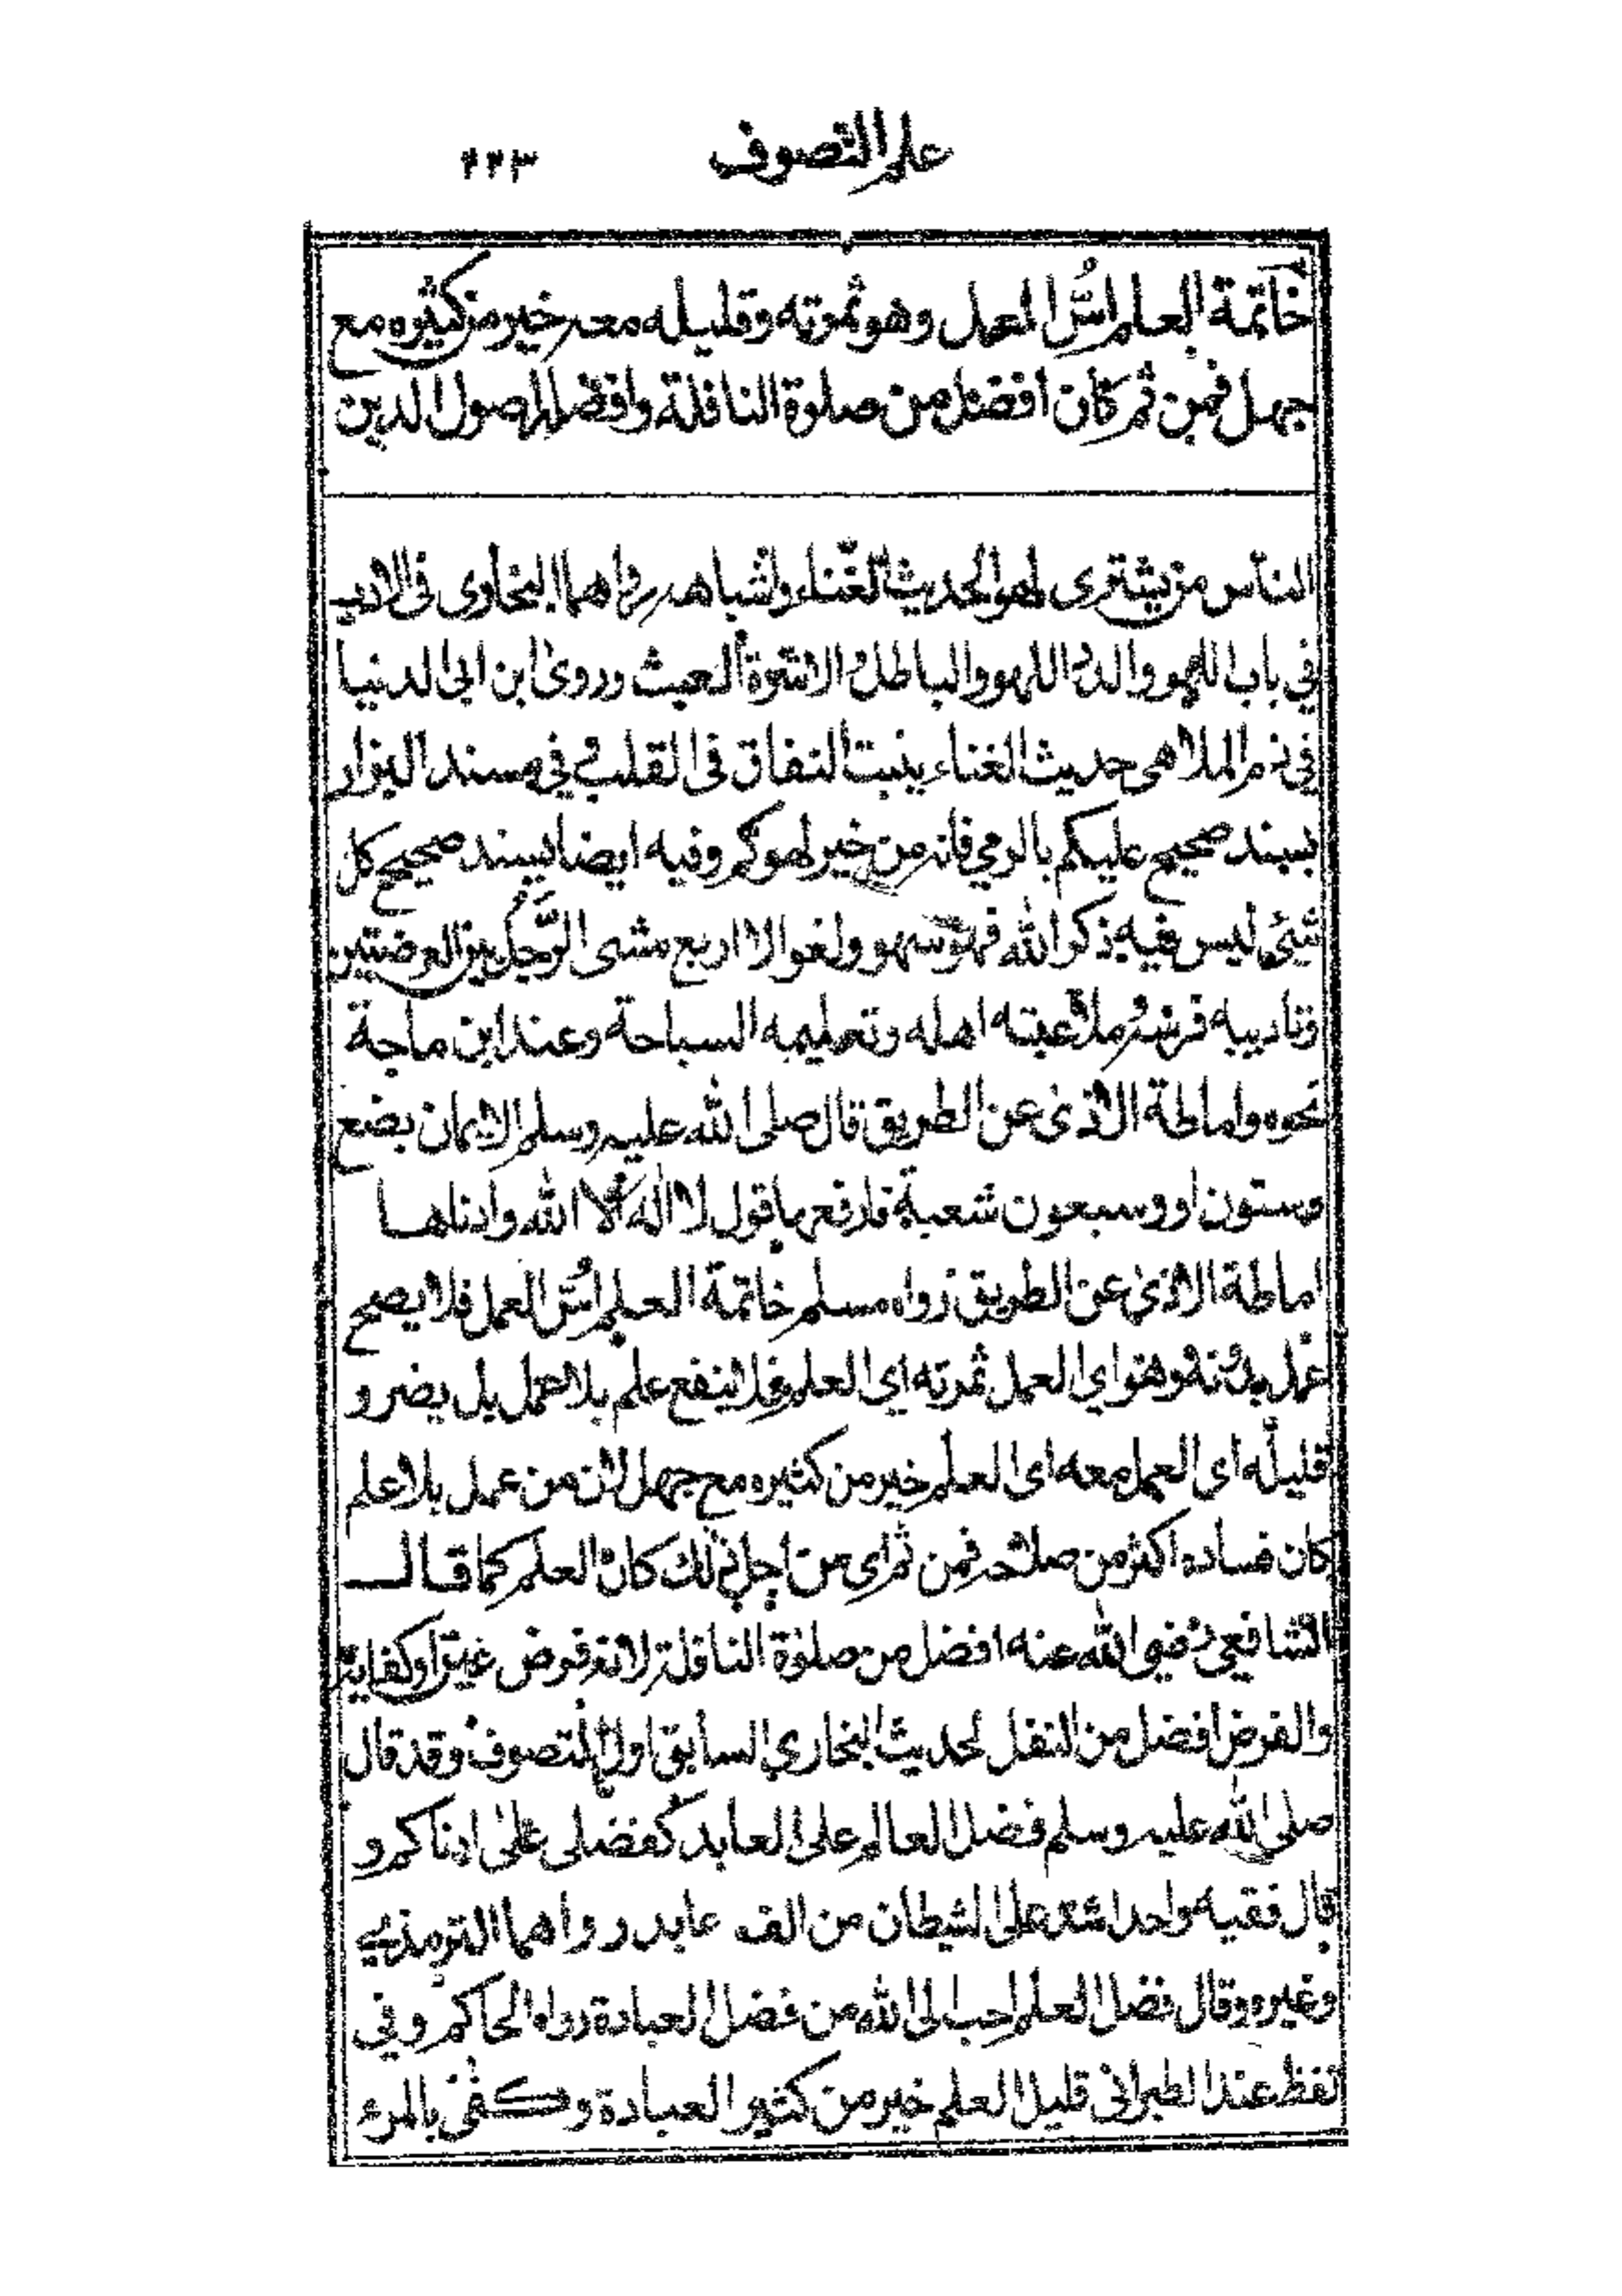 علم التصوف ٢٢٣
خاتمة العلم اسُّ العمل وهو ثمرته وقليله معه خير من كثيره مع
جهل فمن ثم كان افضل من صلوة النافلة وافضله اصول الدين
الناس من يشترى لهو الحديث الغناء واشباهه رواهما البخاوى فى الادب
في باب اللهو والدد اللهو والباطل و الاشرة العبث وروى ابن ابى الدنيا
في ذم الملاهى حديث الغناء ينبت النفاق فى القلب وفي مسند البزار
بسند صحيح عليكم بالرمي فانه من خير لهوكم وفيه ايضا بسند صحيح كل
شئ ليس فيه ذكر الله فهو سهو ولغو الا اربع مشى الرَّجُل بين الغرضتين
وتاديبه فرسه وملاعبته اهله وتعليمه السباحة وعند ابن ماجة
نحوه واماطة الاذى عن الطريق قال صلى الله عليه وسلم الايمان بضع
وستون او وسبعون شعبة فارفعها قول لا اله الا الله وادناها
اماطة الاذى عن الطريق رواه مسلم خاتمة العلم اسُّ العمل فلا يصح
عمل بدونه وهو اي العمل ثمرته اي العلم فلا ينفع علم بلا عمل بل يضر و
قليله اى العمل معه اى العلم خير من كثيره مع جهل لان من عمل بلا علم
كان فساده اكثر من صلاحه فمن ثم اى من اجل ذلك كان العلم كما قال
الشافعي رضى الله عنه افضل من صلوة النافلة لانه فرض عين او كفاية
والفرض افضل من النفل لحديث البخاري السابق اول التصوف وقد قال
صلى الله عليه وسلم فضل العالم على العابد كفضلى على ادناكم و
قال فقيه واحد اشد على الشيطان من الف عابد رواهما الترمذي
وغيره وقال فضل العلم احب الى الله من فضل العبادة رواه الحاكم وفي
لفظ عند الطبرانى قليل العلم خير من كثير العبادة وكفى بالمرء